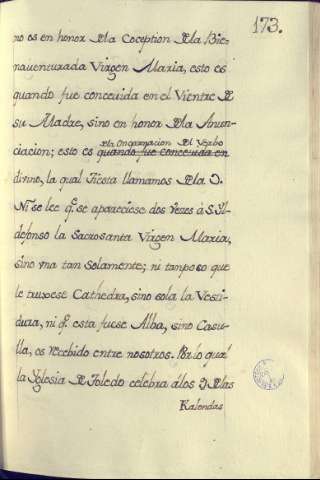 173.
no es en honor de la Coception de la Bie-
naventurada Virgen Maria, esto es
quando fue concevida en el Vientre de
su Madre, sino en honor de la Anun-
de la Encarnacion del Verbo
ciacion; esto es quando fue concevida en
divino, la qual Fiesta llamamos de la O.
Ni se lee q.e se apareciese dos vezes à S. Il-
defonso la Sacrosanta Virgen Maria,
sino vna tan solamente; ni tampoco que
le truxese Cathedra, sino sola la Vesti-
dura, ni q.e esta fuese Alba, sino Casu-
lla, es recebido entre nosotros. Por lo qual
la Yglesia de Toledo celebra á los 9 de las
Kalendas